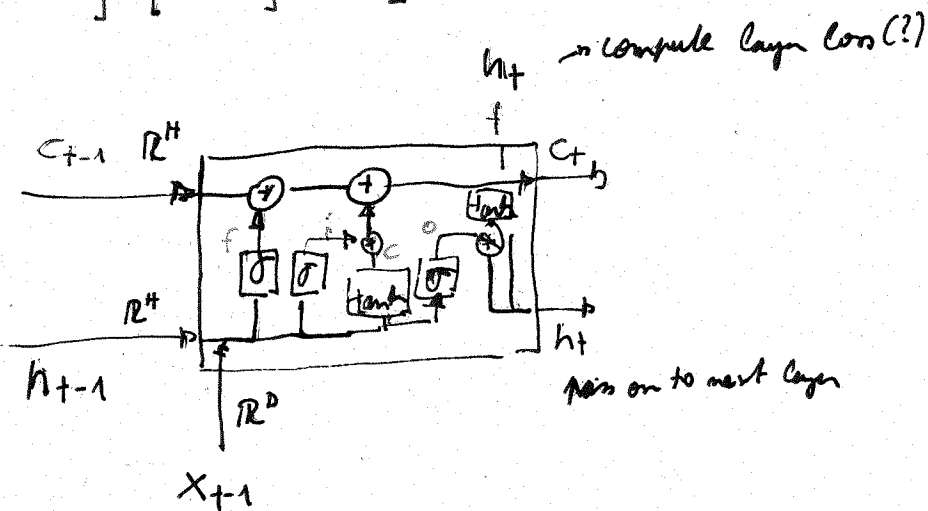 h_t → compute layer loss (?)
C_{t-1} ℝ^H
C_t
*
+
tanh
f
i
*
c
o
*
σ
σ
tanh
σ
ℝ^H
h_{t-1}
h_t
pass on to next layer
ℝ^D
X_{t-1}